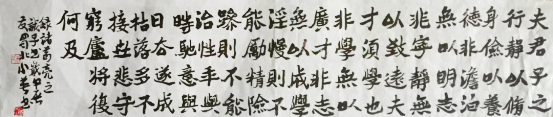 夫君子之
行靜以脩
身儉以養
德非澹泊
無以明志
非寧靜無
以致遠夫
才須學也
非學無以
廣才非志
無以成學
淫慢則不
能勵精險
躁則不能
治性年與
時馳意與
日去遂成
枯落多不
接世悲守
窮廬將復
何及
録諸葛亮之
誡子書歲甲辰